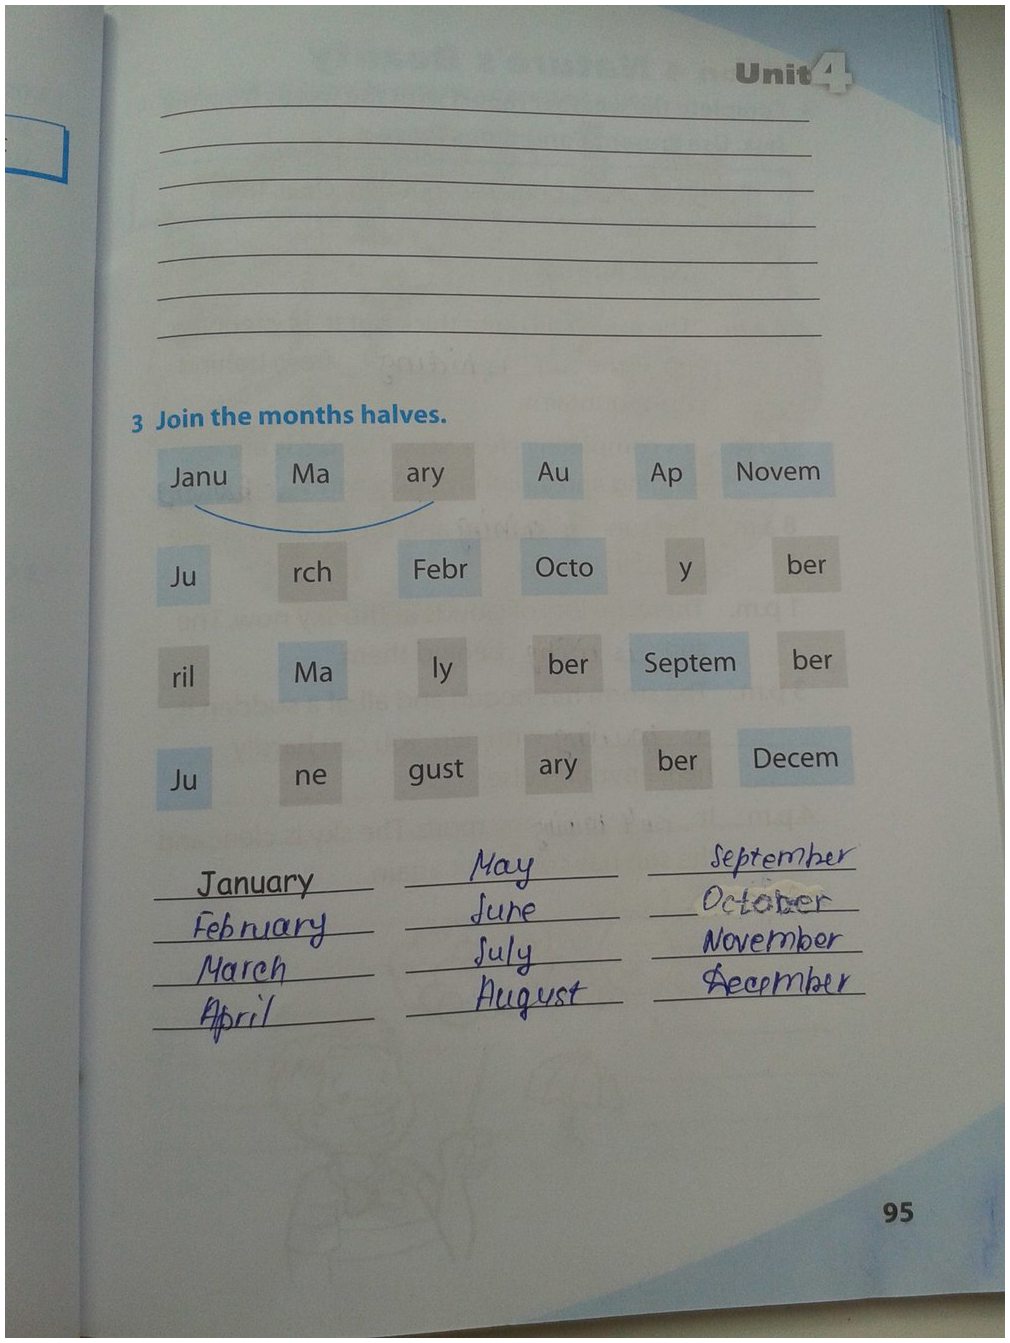 Unit 4
3 Join the months halves.
Janu Ma ary Au Ap Novem
Ju rch Febr Octo y ber
ril Ma ly ber Septem ber
Ju ne gust ary ber Decem
January May September
February June October
March July November
April August December
95